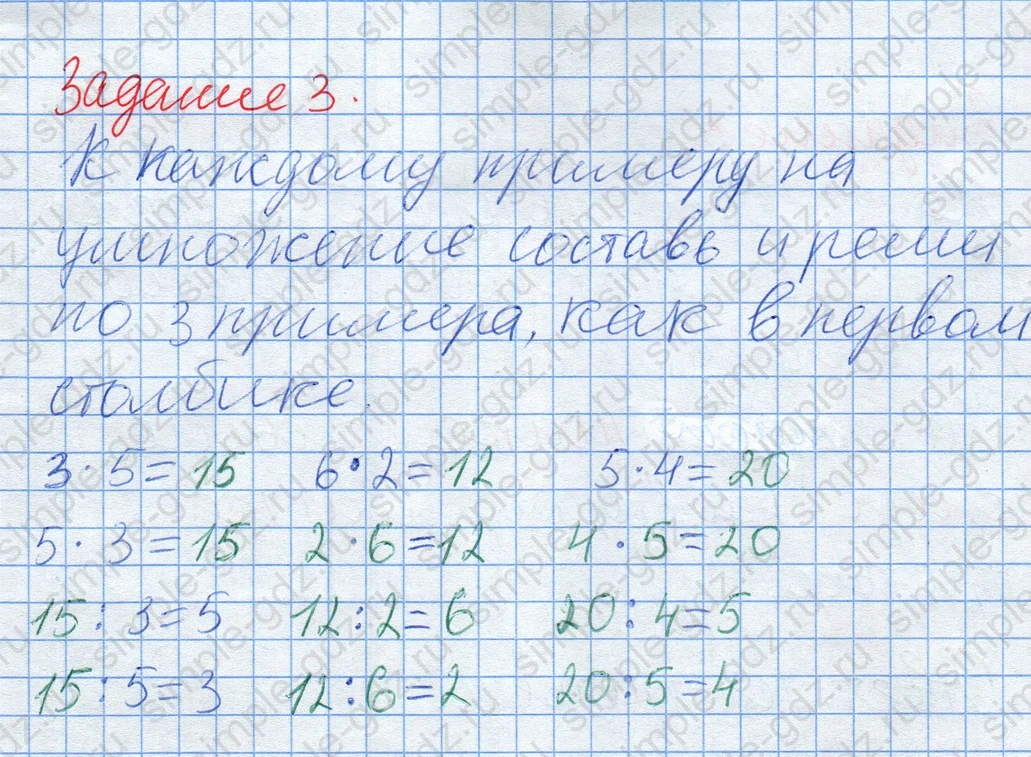 Задание 3.
К каждому примеру на
умножение составь и реши
по 3 примера, как в первом
столбике.
3·5=15 6·2=12 5·4=20
5·3=15 2·6=12 4·5=20
15:3=5 12:2=6 20:4=5
15:5=3 12:6=2 20:5=4
simple-gdz.ru